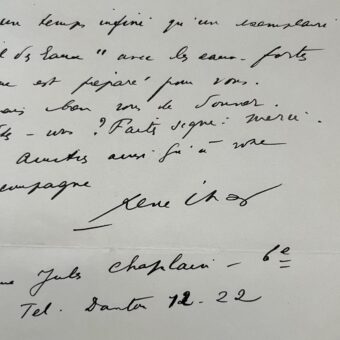 un temps infini qu'un exemplaire
des Eaux" avec les eaux-fortes
est préparé pour vous.
bon vous de donner
vous? Faites signe: merci.
Amitiés ainsi qu'à votre
compagne
René Char
Jules Chaplain - 6e
Tel. Danton 12-22